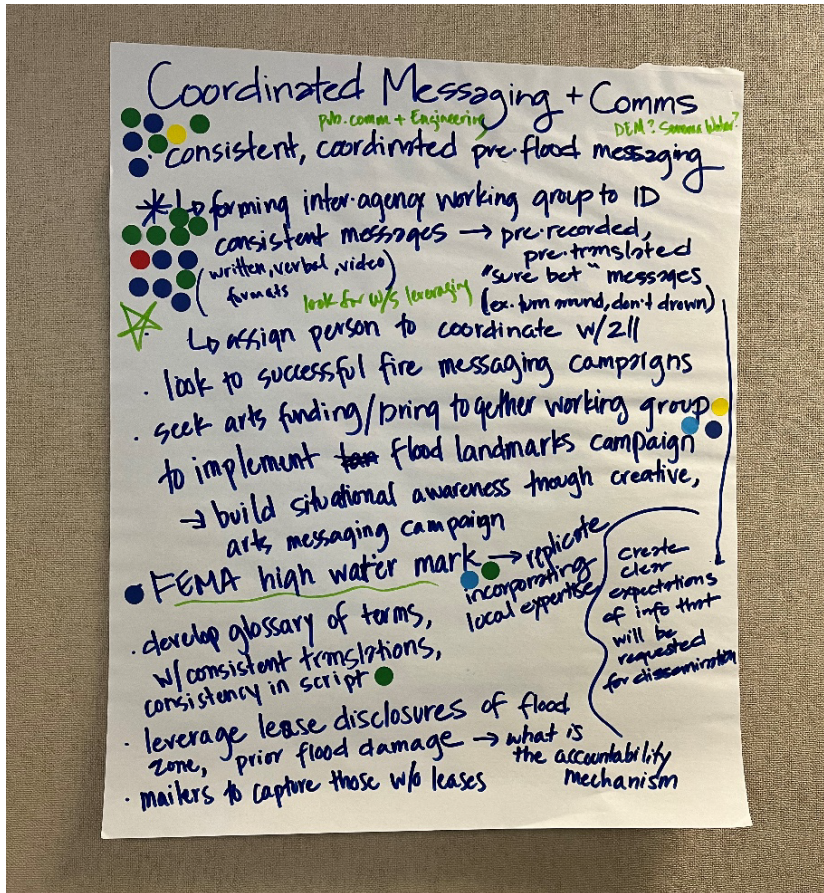 Coordinated Messaging + Comms
pub. comm + Engineering
DEM? Sonoma Water?
· consistent, coordinated pre-flood messaging
* ↳ forming inter-agency working group to ID
consistent messages → pre-recorded,
pre-translated
(written, verbal, video)
formats
"sure bet" messages
look for w/s leveraging
(ex. turn around, don't drown)
↳ assign person to coordinate w/211
· look to successful fire messaging campaigns
· seek arts funding/bring together working group
to implement flood landmarks campaign
→ build situational awareness though creative,
arts messaging campaign
FEMA high water mark → replicate
incorporating
local expertise
create
clear
expectations
of info that
will be
requested
for dissemination
· develop glossary of terms,
w/consistent translations,
consistency in script
· leverage lease disclosures of flood
zone, prior flood damage → what is
the accountability
mechanism
· mailers to capture those w/o leases